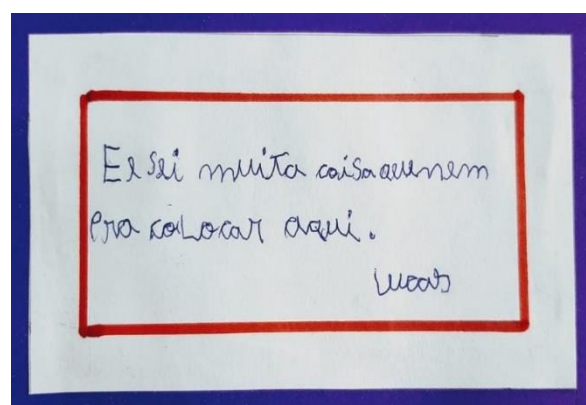 Ee sei muita coisa quenem
pra coLocar aqui.
Lucas